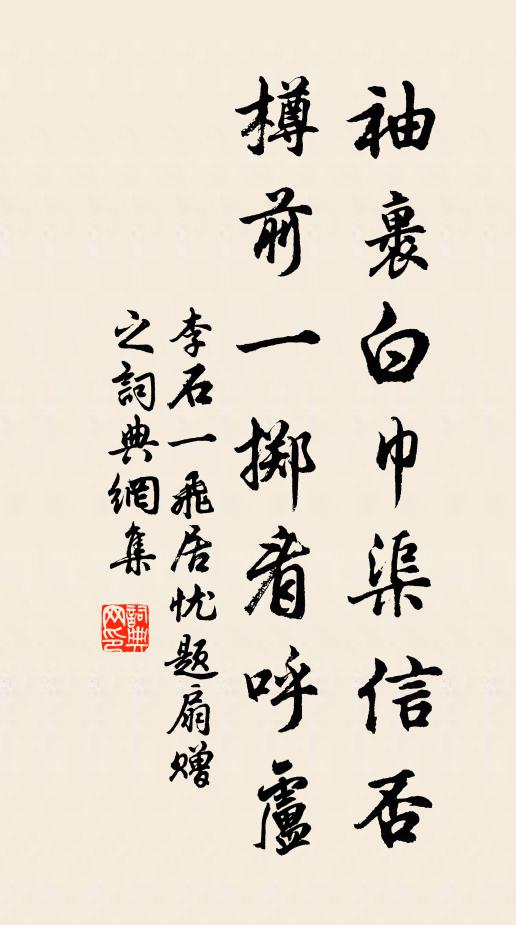 袖裹白巾渠信否
樽前一擲看呼盧
李石一飛居忧题扇赠
之詞典網集
詞典网印